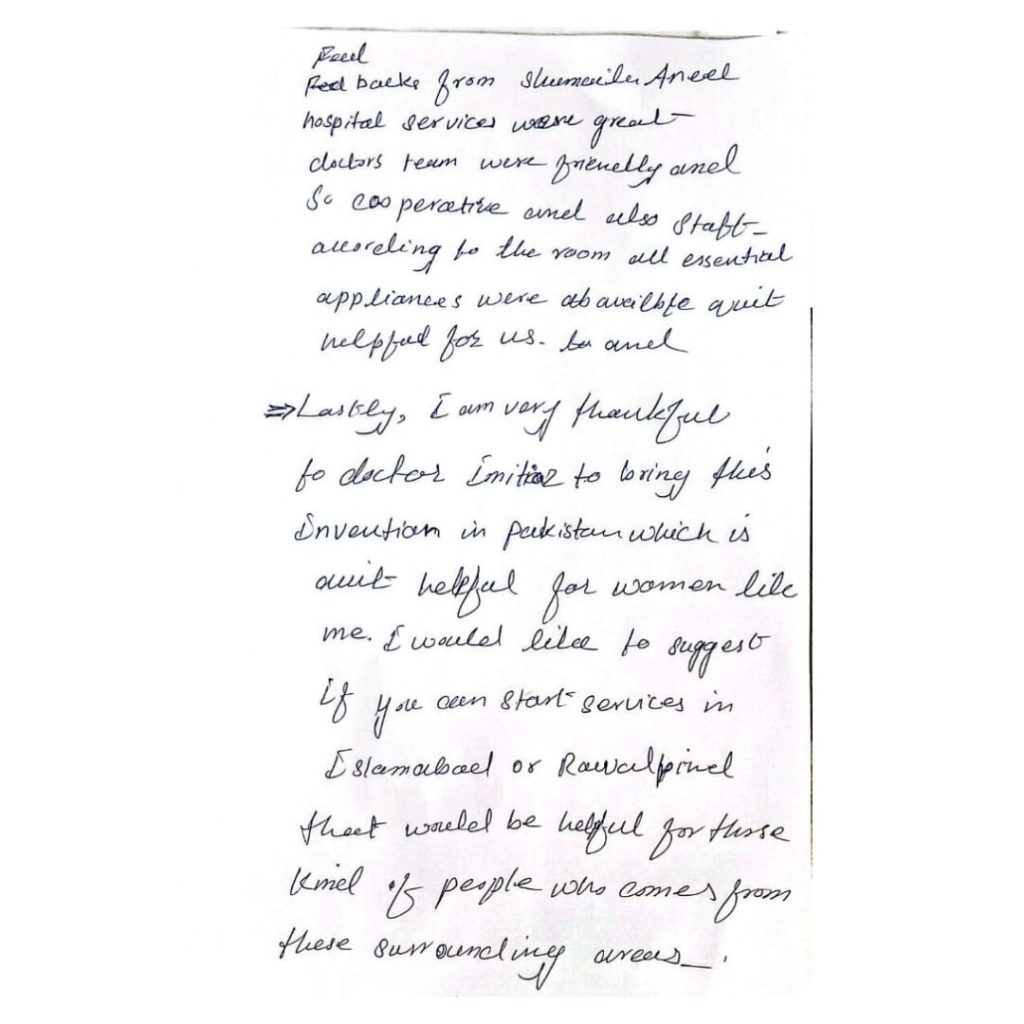 Feed
Fed backs from Shumaila Aneel
hospital services were great
doctors team were friendly and
So cooperative and also staff_
according to the room all essential
appliances were ab availble quit
helpful for us. to and
⇒ Lastly, I am very thankful
to doctor Imitiaz to bring this
Invention in pakistan which is
quit helpful for women like
me. I would like to suggest
if you can start services in
Islamabad or Rawalpind
that would be helpful for those
kind of people who comes from
these surrounding areas_.